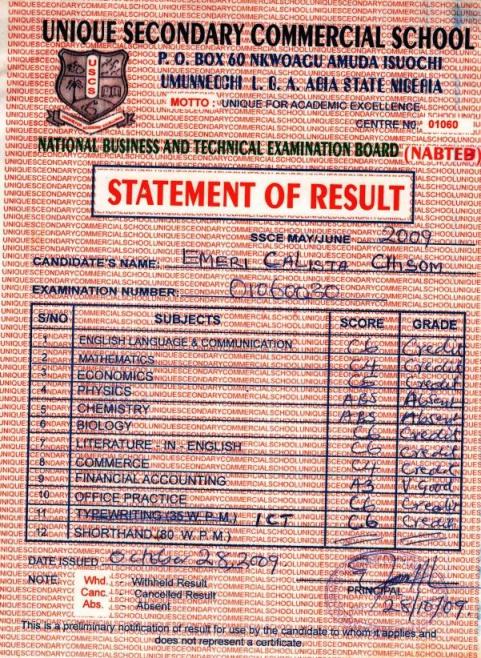 UNIQUE SECONDARY COMMERCIAL SCHOOL
P. O. BOX 60 NKWOAGU AMUDA ISUOCHI
UMUNNEOCHI L. G. A. ABIA STATE NIGERIA
USCS
MOTTO : UNIQUE FOR ACADEMIC EXCELLENCE
CENTRE NO: 01060
NATIONAL BUSINESS AND TECHNICAL EXAMINATION BOARD (NABTEB)
STATEMENT OF RESULT
SSCE MAY/JUNE 2009
CANDIDATE'S NAME: EMERI CALISTA CHISOM
EXAMINATION NUMBER: 01060030
S/NO SUBJECTS SCORE GRADE
1 ENGLISH LANGUAGE & COMMUNICATION C6 Credit
2 MATHEMATICS C4 Credit
3 ECONOMICS C6 Credit
4 PHYSICS ABS Absent
5 CHEMISTRY ABS Absent
6 BIOLOGY C6 Credit
7 LITERATURE - IN - ENGLISH C6 Credit
8 COMMERCE C4 Credit
9 FINANCIAL ACCOUNTING A3 V. Good
10 OFFICE PRACTICE C6 Credit
11 TYPEWRITING (35 W. P. M.) ICT C6 Credit
12 SHORTHAND (80 W. P. M.)
DATE ISSUED October 28, 2009
NOTE: Whd. :- Withheld Result
Canc. :- Cancelled Result
Abs. :- Absent
PRINCIPAL
28/10/09
This is a preliminary notification of result for use by the candidate to whom it applies and
does not represent a certificate.